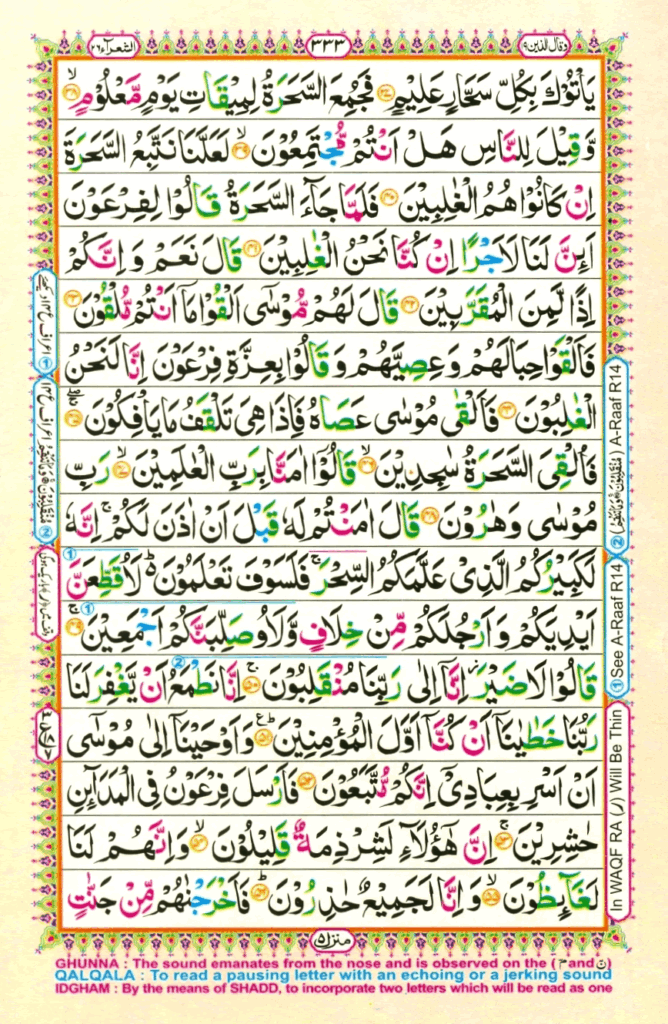 وقال الذين ١٩
٣٣٣
الشعرآء ٢٦
يَاْتُوْكَ بِكُلِّ سَحَّارٍ عَلِيْمٍ ﴿٣٧﴾ فَجُمِعَ السَّحَرَةُ لِمِيْقَاتِ يَوْمٍ مَّعْلُوْمٍ ۙ﴿٣٨﴾
وَّقِيْلَ لِلنَّاسِ هَلْ اَنْتُمْ مُّجْتَمِعُوْنَ ۙ﴿٣٩﴾ لَعَلَّنَا نَتَّبِعُ السَّحَرَةَ
اِنْ كَانُوْا هُمُ الْغٰلِبِيْنَ ﴿٤٠﴾ فَلَمَّا جَآءَ السَّحَرَةُ قَالُوْا لِفِرْعَوْنَ
اَئِنَّ لَنَا لَاَجْرًا اِنْ كُنَّا نَحْنُ الْغٰلِبِيْنَ ﴿٤١﴾ قَالَ نَعَمْ وَاِنَّكُمْ
اِذًا لَّمِنَ الْمُقَرَّبِيْنَ ﴿٤٢﴾ قَالَ لَهُمْ مُّوْسٰٓى اَلْقُوْا مَاۤ اَنْتُمْ مُّلْقُوْنَ ﴿٤٣﴾
فَاَلْقَوْا حِبَالَهُمْ وَعِصِيَّهُمْ وَقَالُوْا بِعِزَّةِ فِرْعَوْنَ اِنَّا لَنَحْنُ
الْغٰلِبُوْنَ ﴿٤٤﴾ فَاَلْقٰى مُوْسٰى عَصَاهُ فَاِذَا هِيَ تَلْقَفُ مَا يَاْفِكُوْنَ ۚۖ﴿٤٥﴾
فَاُلْقِيَ السَّحَرَةُ سٰجِدِيْنَ ۙ﴿٤٦﴾ قَالُوْۤا اٰمَنَّا بِرَبِّ الْعٰلَمِيْنَ ۙ﴿٤٧﴾ رَبِّ
مُوْسٰى وَهٰرُوْنَ ﴿٤٨﴾ قَالَ اٰمَنْتُمْ لَهٗ قَبْلَ اَنْ اٰذَنَ لَكُمْ ۚ اِنَّهٗ
لَكَبِيْرُكُمُ الَّذِيْ عَلَّمَكُمُ السِّحْرَ ۚ فَلَسَوْفَ تَعْلَمُوْنَ ؕ۬ لَاُقَطِّعَنَّ
اَيْدِيَكُمْ وَاَرْجُلَكُمْ مِّنْ خِلَافٍ وَّلَاُوصَلِّبَنَّكُمْ اَجْمَعِيْنَ ۚ﴿٤٩﴾
قَالُوْا لَا ضَيْرَ ؗ اِنَّاۤ اِلٰى رَبِّنَا مُنْقَلِبُوْنَ ۚ﴿٥٠﴾ اِنَّا نَطْمَعُ اَنْ يَّغْفِرَ لَنَا
رَبُّنَا خَطٰيٰنَاۤ اَنْ كُنَّاۤ اَوَّلَ الْمُؤْمِنِيْنَ ؕ﴿٥١﴾ وَاَوْحَيْنَاۤ اِلٰى مُوْسٰٓى
اَنْ اَسْرِ بِعِبَادِيْۤ اِنَّكُمْ مُّتَّبَعُوْنَ ﴿٥٢﴾ فَاَرْسَلَ فِرْعَوْنُ فِى الْمَدَآئِنِ
حٰشِرِيْنَ ۚ﴿٥٣﴾ اِنَّ هٰٓؤُلَآءِ لَشِرْذِمَةٌ قَلِيْلُوْنَ ۙ﴿٥٤﴾ وَاِنَّهُمْ لَنَا
لَغَآئِظُوْنَ ۙ﴿٥٥﴾ وَاِنَّا لَجَمِيْعٌ حٰذِرُوْنَ ؕ﴿٥٦﴾ فَاَخْرَجْنٰهُمْ مِّنْ جَنّٰتٍ
① See A-Raaf R14
② A-Raaf R14
In WAQF RA (ر) Will Be Thin
منزل ٥
GHUNNA : The sound emanates from the nose and is observed on the (م and ن)
QALQALA : To read a pausing letter with an echoing or a jerking sound
IDGHAM : By the means of SHADD, to incorporate two letters which will be read as one